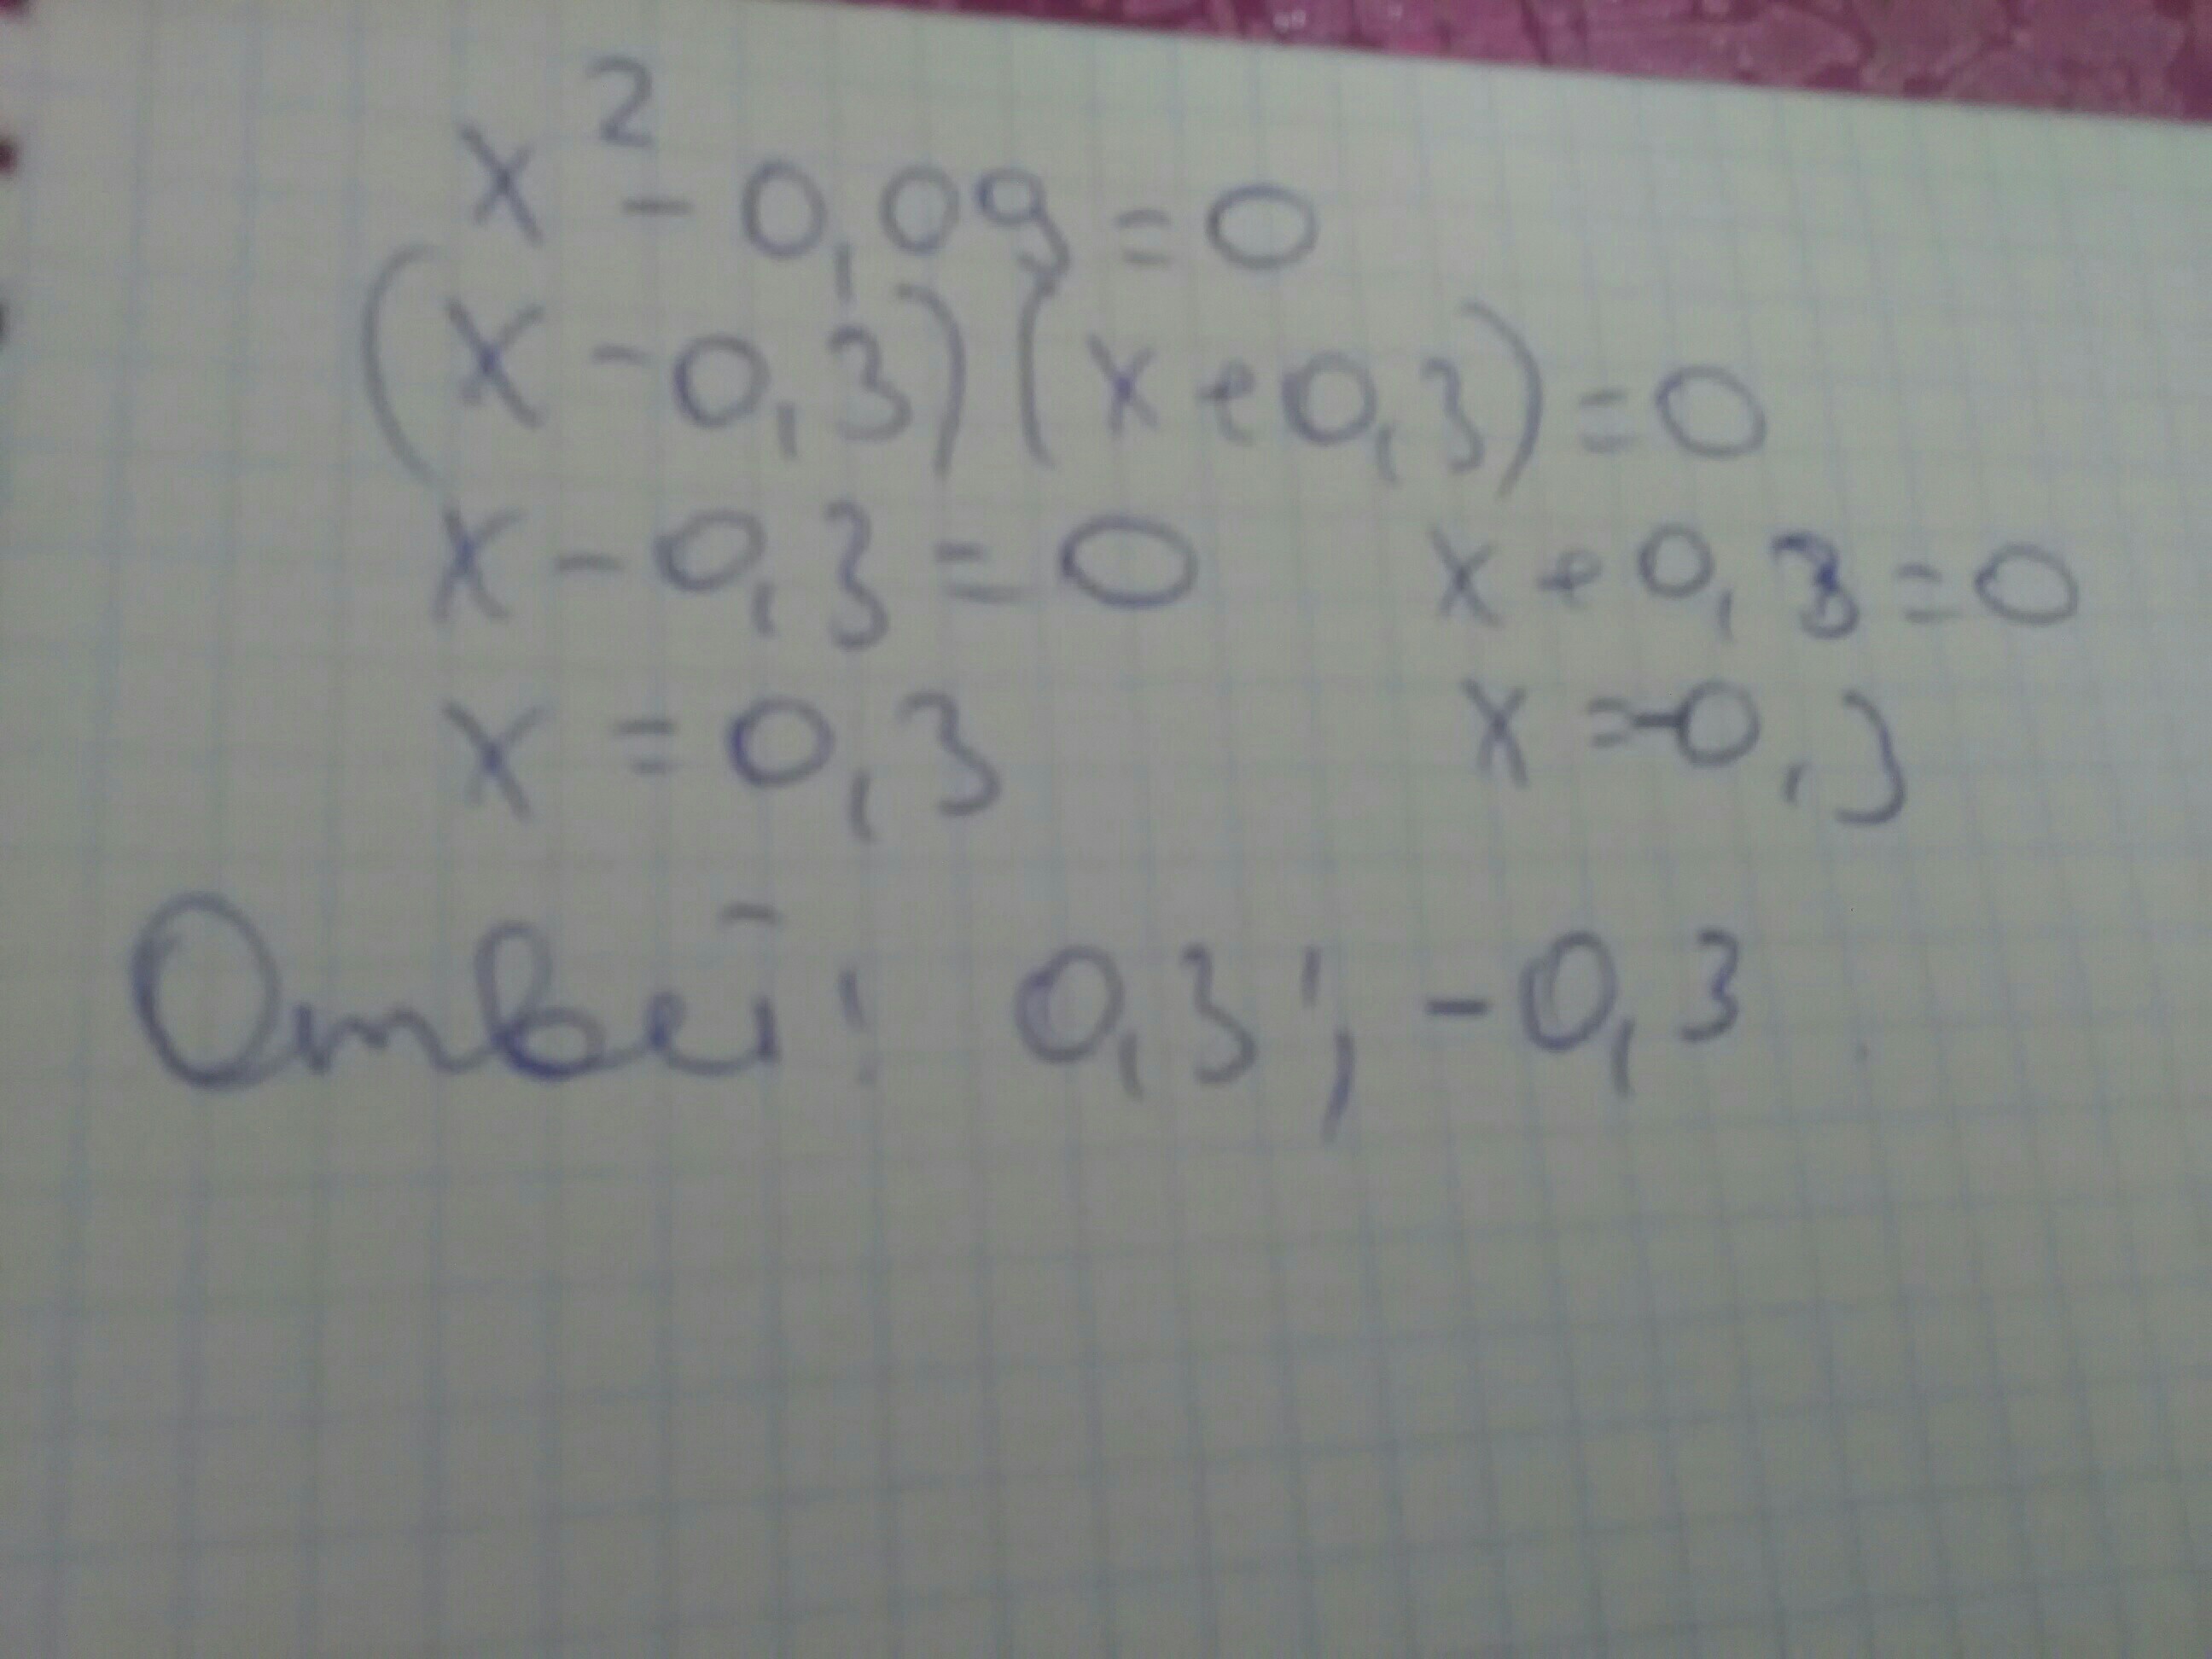 x² - 0,09 = 0
(x - 0,3)(x + 0,3) = 0
x - 0,3 = 0 x + 0,3 = 0
x = 0,3 x = -0,3
Ответ: 0,3; -0,3